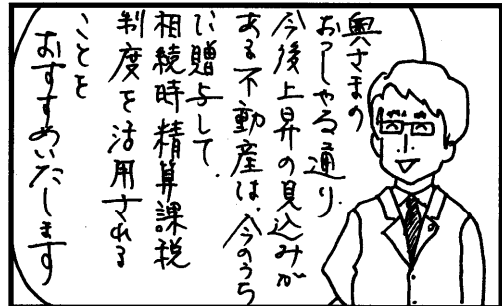 奥さまの
おっしゃる通り、
今後上昇の見込みが
ある不動産は、今のうち
に贈与して、
相続時精算課税
制度を活用される
ことを
おすすめいたします